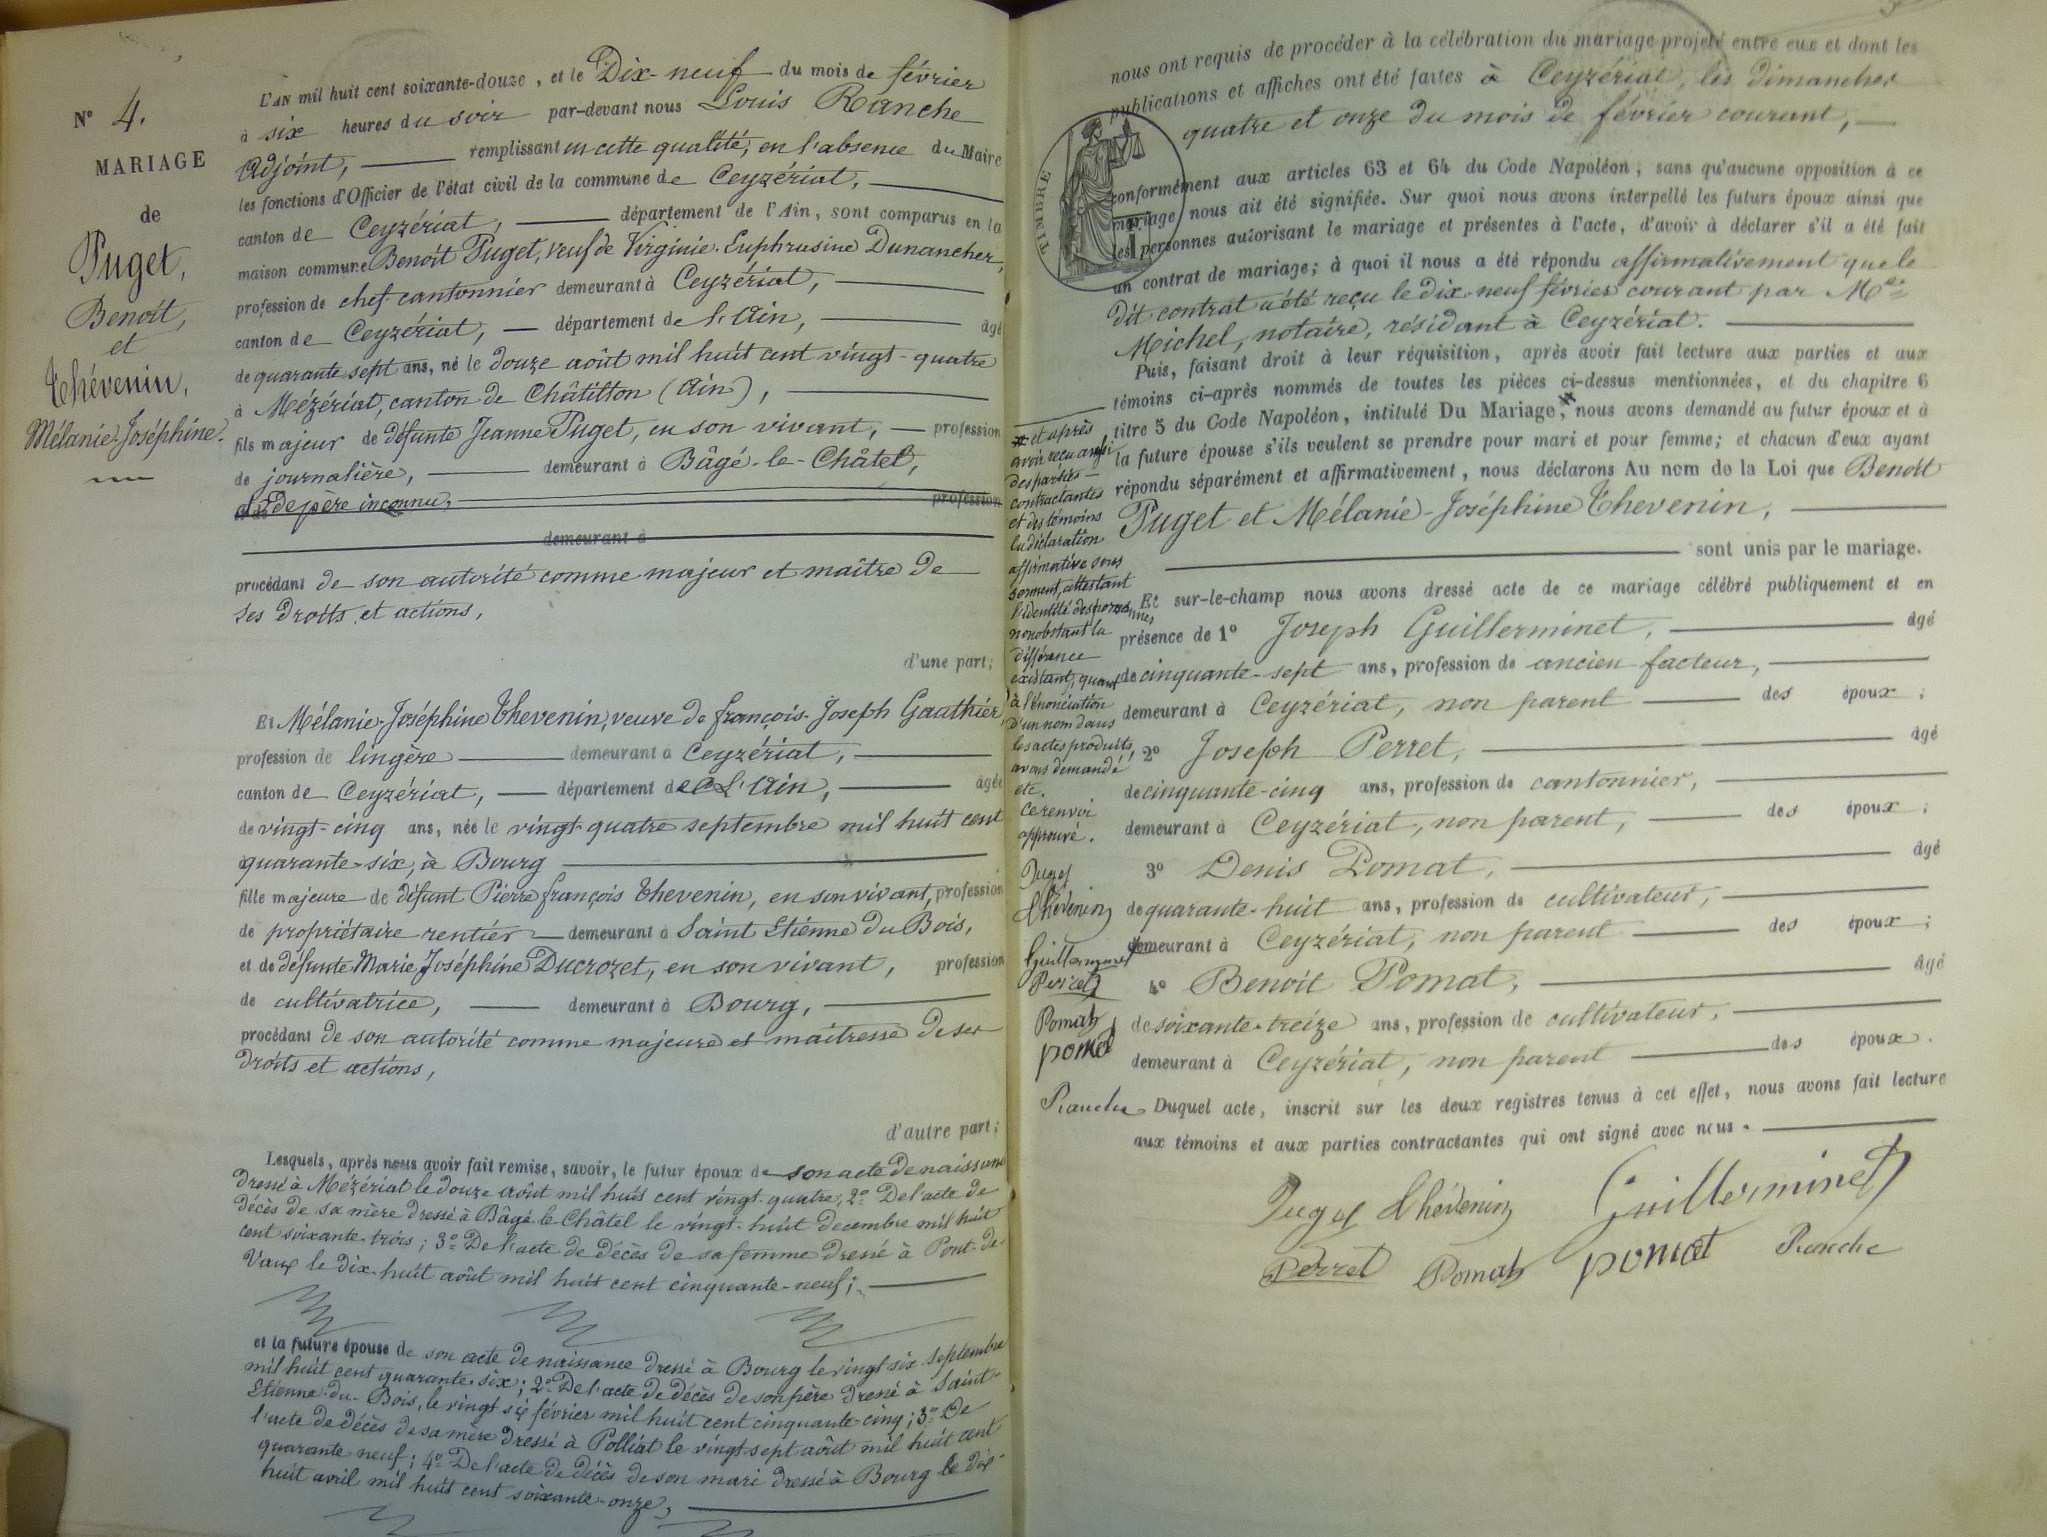 N° 4.
MARIAGE
de
Puget,
Benoît,
et
Thévenin,
Mélanie-Joséphine.
L'AN mil huit cent soixante-douze, et le Dix-neuf du mois de février
à six heures du soir par-devant nous Louis Ranche
Adjoint, remplissant en cette qualité, en l'absence du Maire
les fonctions d'Officier de l'état civil de la commune de Ceyzériat,
canton de Ceyzériat, département de l'Ain, sont comparus en la
maison commune Benoît Puget, veuf de Virginie-Euphrasine Dunancher,
profession de chef-cantonnier demeurant à Ceyzériat,
canton de Ceyzériat, département de l'Ain, âgé
de quarante sept ans, né le douze août mil huit cent vingt-quatre
à Mézériat, canton de Châtillon (Ain),
fils majeur de défunte Jeanne Puget, en son vivant, profession
de journalière, demeurant à Bâgé-le-Châtel,
et de père inconnu, profession
demeurant à
procédant de son autorité comme majeur et maître de
ses droits et actions,
d'une part;
Et Mélanie-Joséphine Thevenin, veuve de françois-Joseph Gauthier,
profession de lingère demeurant à Ceyzériat,
canton de Ceyzériat, département de l'Ain, âgée
de vingt-cinq ans, née le vingt-quatre septembre mil huit cent
quarante-six, à Bourg
fille majeure de défunt Pierre françois Thevenin, en son vivant, profession
de propriétaire rentier demeurant à Saint Etienne du Bois,
et de défunte Marie Joséphine Ducrozet, en son vivant, profession
de cultivatrice, demeurant à Bourg,
procédant de son autorité comme majeure et maitresse de ses
droits et actions,
d'autre part;
Lesquels, après nous avoir fait remise, savoir, le futur époux de son acte de naissance
dressé à Mézériat le douze août mil huit cent vingt-quatre; 2° De l'acte de
décès de sa mère dressé à Bâgé-le-Châtel le vingt-huit decembre mil huit
cent soixante-trois; 3° De l'acte de décès de sa femme dressé à Pont-de-
Vaux le dix-huit août mil huit cent cinquante-neuf;
et la future épouse de son acte de naissance dressé à Bourg le vingt six septembre
mil huit cent quarante-six; 2° De l'acte de décès de son père dressé à Saint-
Etienne-du-Bois, le vingt six février mil huit cent cinquante-cinq; 3° De
l'acte de décès de sa mère dressé à Polliat le vingt-sept août mil huit cent
quarante neuf; 4° De l'acte de décès de son mari dressé à Bourg le dix-
huit avril mil huit cent soixante-onze,
nous ont requis de procéder à la célébration du mariage projeté entre eux et dont les
publications et affiches ont été faites à Ceyzériat, les dimanches
quatre et onze du mois de février courant,
TIMBRE
conformément aux articles 63 et 64 du Code Napoléon, sans qu'aucune opposition à ce
mariage nous ait été signifiée. Sur quoi nous avons interpellé les futurs époux ainsi que
les personnes autorisant le mariage et présentes à l'acte, d'avoir à déclarer s'il a été fait
un contrat de mariage; à quoi il nous a été répondu affirmativement que le
dit contrat a été reçu le dix-neuf février courant par Me
Michel, notaire, résidant à Ceyzériat.
Puis, faisant droit à leur réquisition, après avoir fait lecture aux parties et aux
témoins ci-après nommés de toutes les pièces ci-dessus mentionnées, et du chapitre 6
titre 5 du Code Napoléon, intitulé Du Mariage, nous avons demandé au futur époux et à
la future épouse s'ils veulent se prendre pour mari et pour femme; et chacun d'eux ayant
répondu séparément et affirmativement, nous déclarons Au nom de la Loi que Benoît
Puget et Mélanie-Joséphine Thevenin,
sont unis par le mariage.
Et sur-le-champ nous avons dressé acte de ce mariage célébré publiquement et en
présence de 1° Joseph Guillerminet, âgé
de cinquante-sept ans, profession de ancien facteur,
demeurant à Ceyzériat, non parent des époux;
2° Joseph Perret, âgé
de cinquante-cinq ans, profession de cantonnier,
demeurant à Ceyzériat, non parent, des époux;
3° Denis Pomat, âgé
de quarante-huit ans, profession de cultivateur,
demeurant à Ceyzériat, non parent des époux;
4° Benoît Pomat, âgé
de soixante-treize ans, profession de cultivateur,
demeurant à Ceyzériat, non parent des époux.
Duquel acte, inscrit sur les deux registres tenus à cet effet, nous avons fait lecture
aux témoins et aux parties contractantes qui ont signé avec nous.
Puget Thévenin Guillerminet
Perret Pomat pomat Ranche
et après
avoir reçu aussi
des parties
contractantes
et des témoins
la déclaration
affirmative sous
serment, attestant
l'identité des personnes
nonobstant la
différence
existant, quant
à l'énonciation
d'un nom dans
les actes produits,
avons demandé
etc.
ce renvoi
approuvé.
Puget
Thévenin
Guillerminet
Perret
Pomat
pomat
Ranche